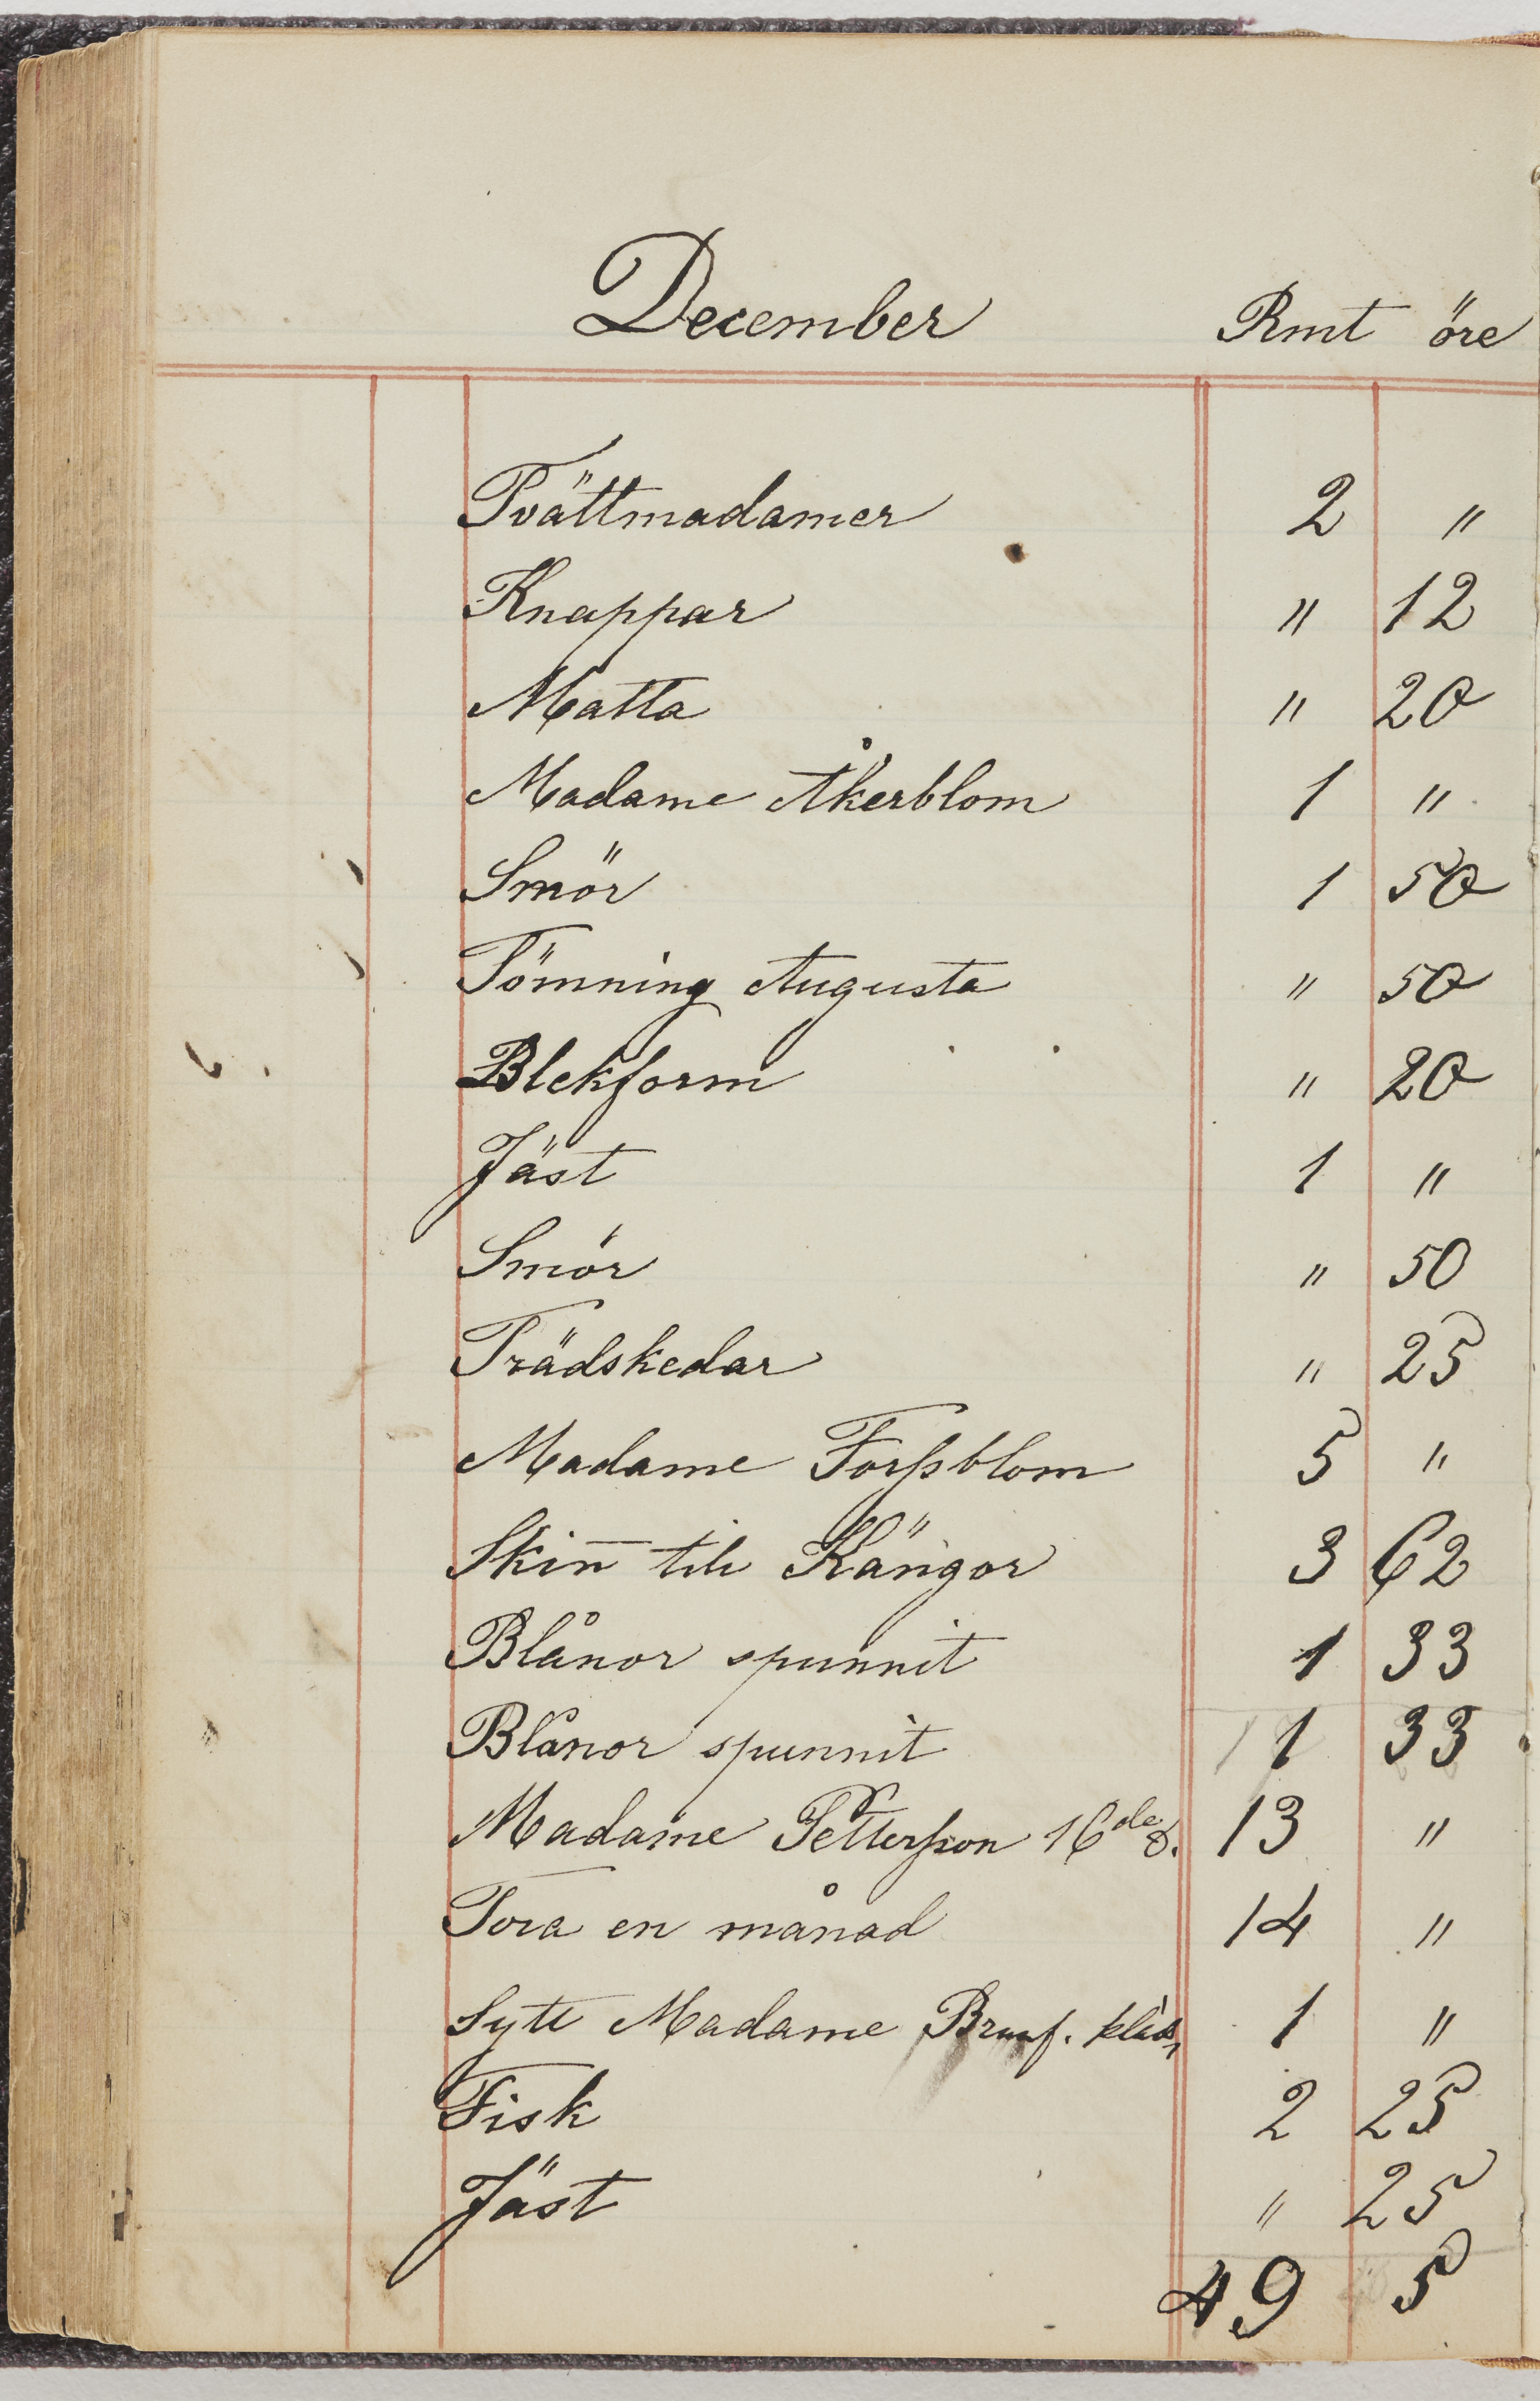 December Rmt öre
Tvättmadamer 2 "
Knappar " 12
Matta " 20
Madame Åkerblom 1 "
Smör 1 50
Tömning Augusta " 50
Blekform " 20
Jäst 1 "
Smör " 50
Trädskedar " 25
Madame Forssblom 5 "
Skin̄ till Kängor 3 62
Blånor spunnit 1 33
Blånor spunnit 1 33
Madame Pettersson 16de d. 13 "
Tora en månad 14 "
Sytt Madame 1 "
Fisk 2 25
Jäst " 25
49 5